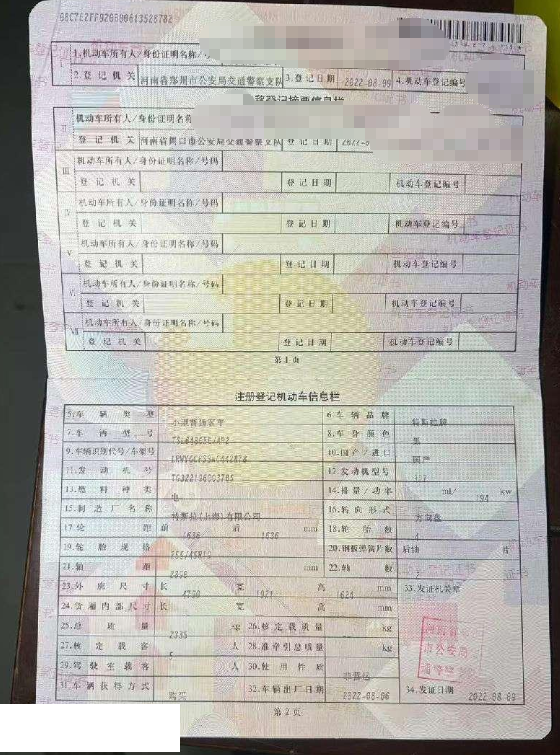 1.机动车所有人/身份证明名称/
2.登记机关 河南省郑州市公安局交通警察支队 3.登记日期 2022-08-09 4.机动车登记编号
转移登记摘要信息栏
机动车所有人/身份证明名称
登记机关 河南省周口市公安局交通警察支队 登记日期
III 机动车所有人/身份证明名称/号码
登记机关 登记日期 机动车登记编号
机动车所有人/身份证明名称/号码
登记机关 登记日期 机动车登记编号
V 机动车所有人/身份证明名称/号码
登记机关 登记日期 机动车登记编号
机动车所有人/身份证明名称/号码
登记机关 登记日期 机动车登记编号
VII 机动车所有人/身份证明名称/号码
登记机关 登记日期 机动车登记编号
第1页
注册登记机动车信息栏
5.车辆类型 小型普通客车 6.车辆品牌 特斯拉牌
7.车辆型号 8.车身颜色 黑
9.车辆识别代号/车架号 10.国产/进口 国产
11.发动机号 12.发动机型号
13.燃料种类 电 14.排量/功率 ml/ 194 kw
15.制造厂名称 特斯拉(上海)有限公司 16.转向形式 方向盘
17.轮距 前 1636 后 1636 mm 18.轮胎数 4
19.轮胎规格 255/45R19 20.钢板弹簧片数 后轴 片
21.轴距 mm 22.轴数 2
23.外廓尺寸 长 4750 宽 1921 高 1624 mm 33.发证机关章
24.货厢内部尺寸 长 宽 高 mm
25.总质量 2335 kg 26.核定载质量 kg
27.核定载客 5 人 28.准牵引总质量 kg
29.驾驶室载客 人 30.使用性质 非营运
31.车辆获得方式 购买 32.车辆出厂日期 2022-08-06 34.发证日期 2022-08-09
第2页